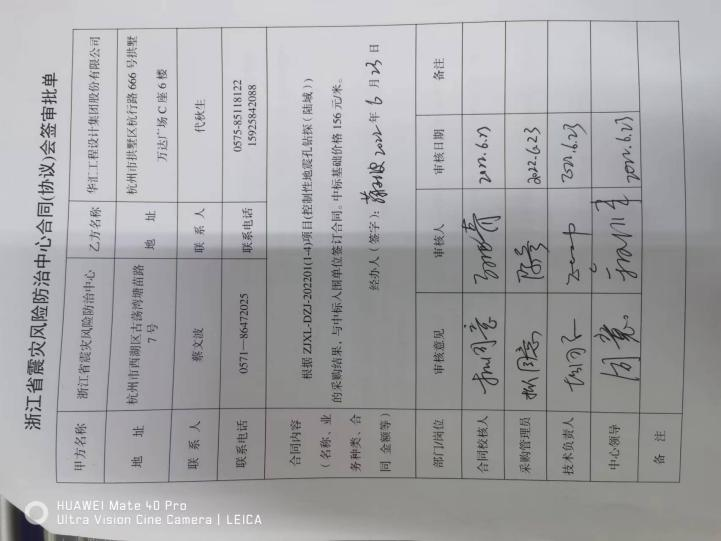 浙江省震灾风险防治中心合同(协议)会签审批单
甲方名称 浙江省震灾风险防治中心 乙方名称 华汇工程设计集团股份有限公司
地 址 杭州市西湖区古荡湾塘苗路 7 号 地 址 杭州市拱墅区杭行路 666 号拱墅 万达广场 C 座 6 楼
联 系 人 蔡文波 联 系 人 代秋生
联系电话 0571—86472025 联系电话 0575-85118122 15925842088
合同内容
(名称、业
务种类、合
同 金额等)
根据 ZJXL-DZJ-202201(1-4)项目(控制性地震孔钻探(陆域))
的采购结果,与中标入围单位签订合同。中标基础价格 156 元/米。
经办人(签字): 2022 年 6 月 23 日
部门/岗位 审核意见 审核人 审核日期 备注
合同校核人 拟同意 2022.6.23
采购管理员 拟同意 2022.6.23
技术负责人 2022.6.23
中心领导 同意 2022.6.23
备 注
HUAWEI Mate 40 Pro
Ultra Vision Cine Camera | LEICA